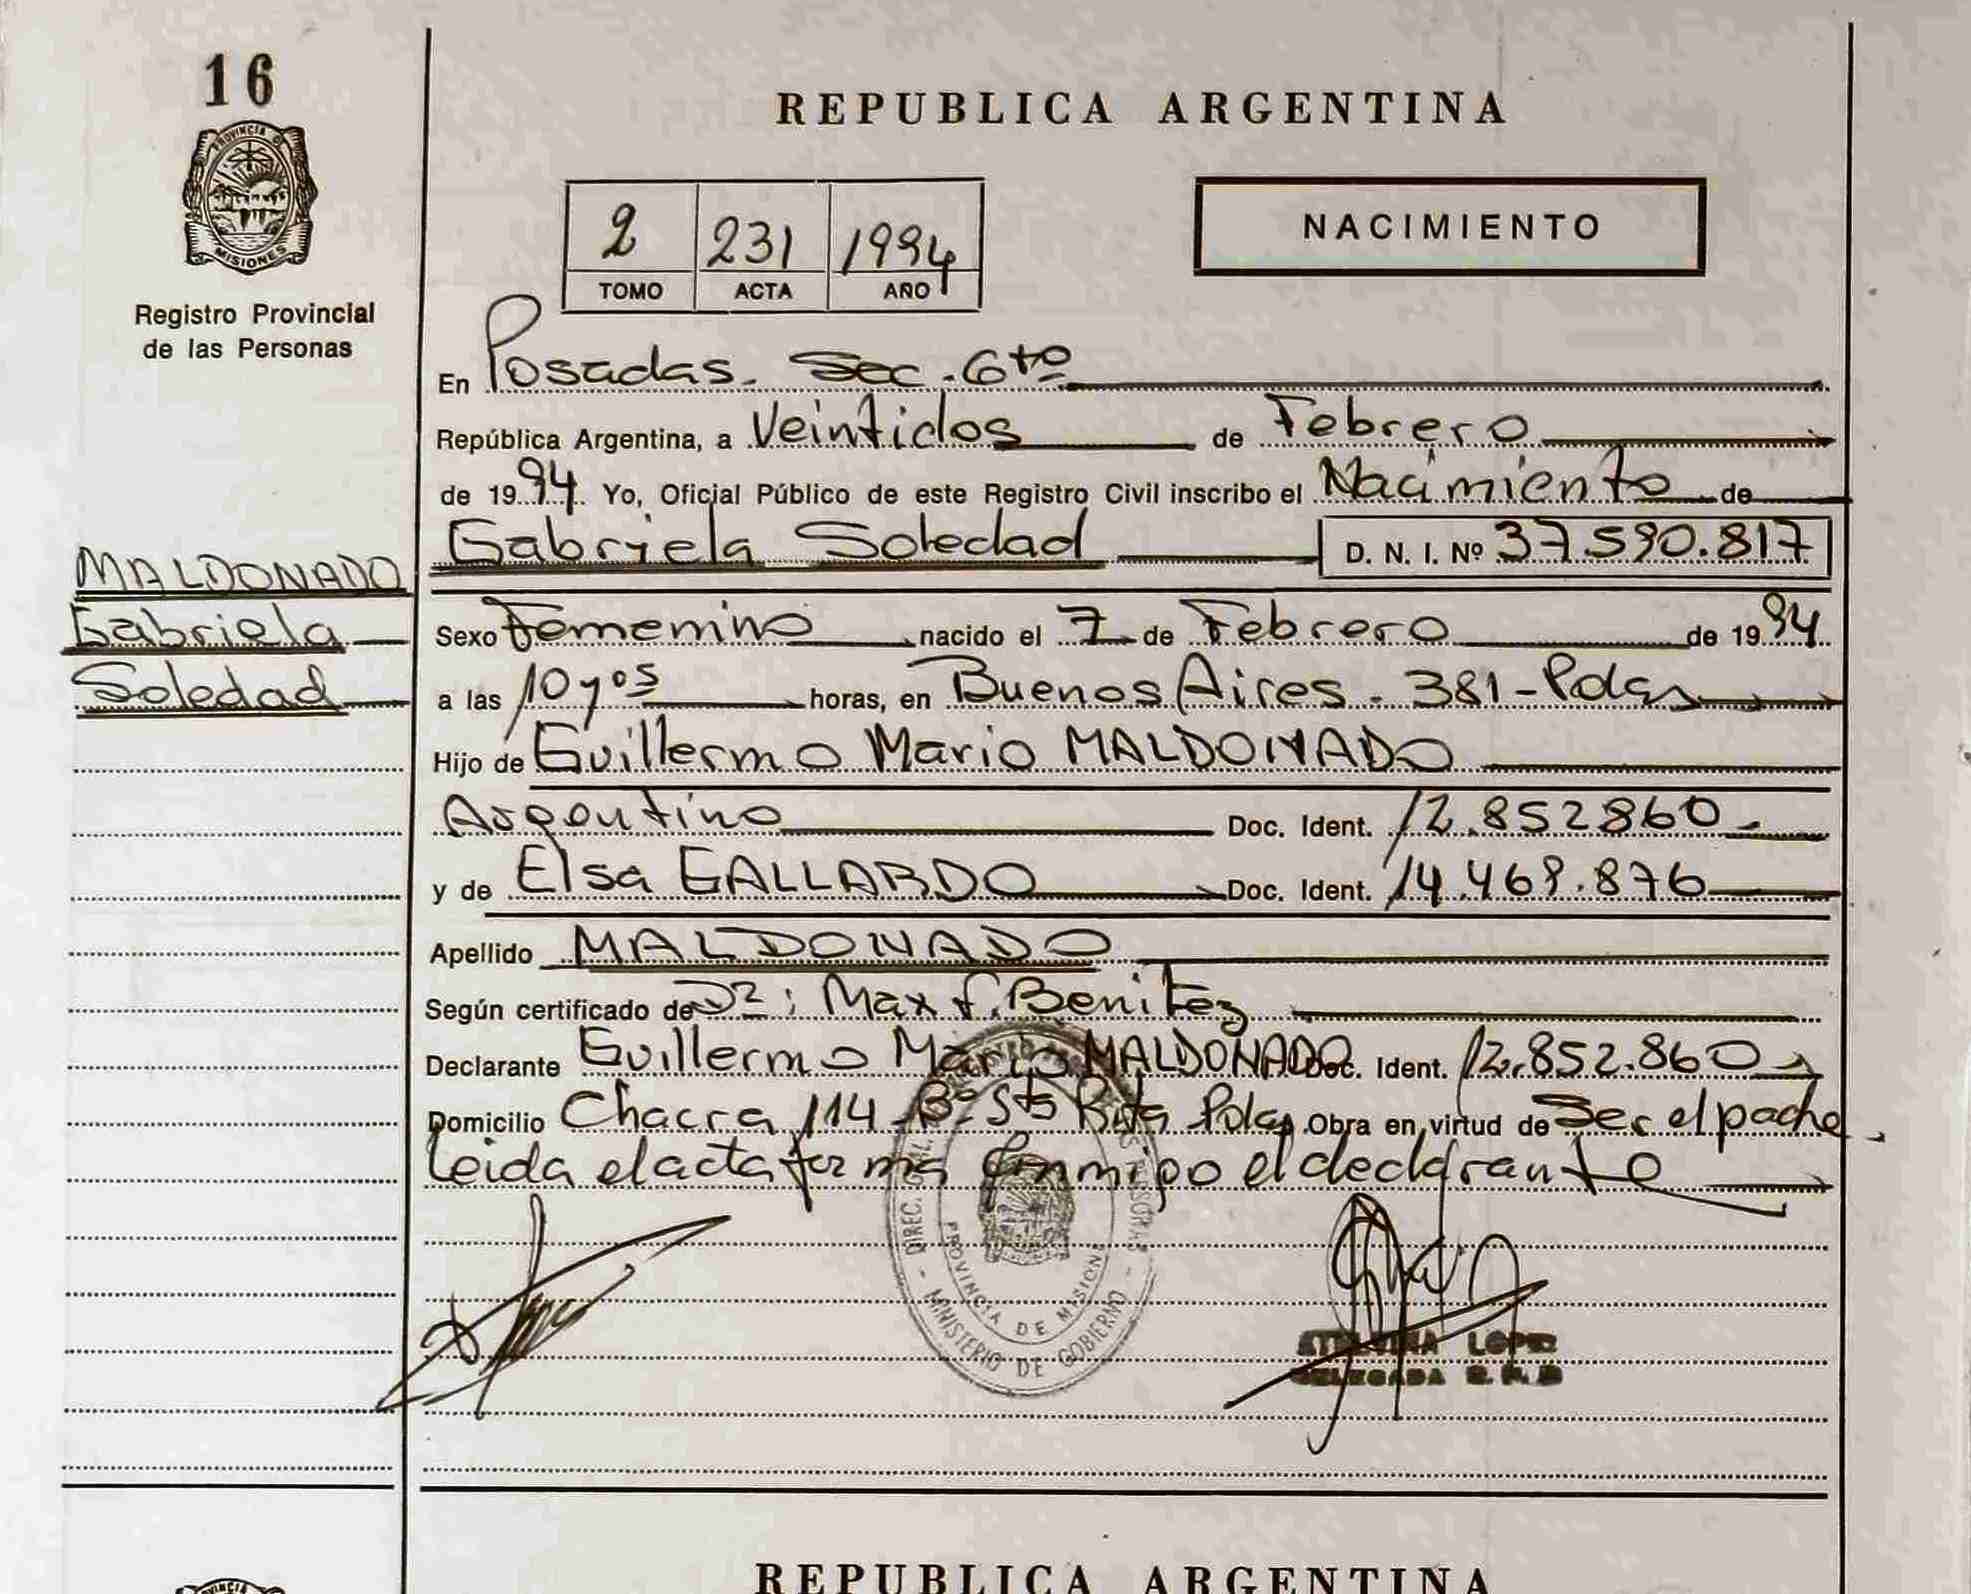 16
PROVINCIA D
MISIONES
Registro Provincial
de las Personas
MALDONADO
Gabriela
Soledad
REPUBLICA ARGENTINA
2 231 1994
TOMO ACTA AÑO
NACIMIENTO
En Posadas. Sec. 6to
República Argentina, a Veintidos de Febrero
de 1994 Yo, Oficial Público de este Registro Civil inscribo el Nacimiento de
Gabriela Soledad D. N. I. Nº 37.590.817
Sexo Femenino nacido el 7 de Febrero de 1994
a las 10 y 05 horas, en Buenos Aires - 381 - Pdas
Hijo de Guillermo Mario MALDONADO
Argentino Doc. Ident. 12.852860
y de Elsa GALLARDO Doc. Ident. 14.469.876
Apellido MALDONADO
Según certificado de Dr: Max f. Benitez
Declarante Guillermo Mario MALDONADO Doc. Ident. 12.852.860
Domicilio Chacra 114 Bº Sta Rita Pdas Obra en virtud de Ser el padre
leida el acta firma conmigo el declarante
DIREC. GRAL.
PROVINCIA DE MISIONES
- MINISTERIO DE GOBIERNO -
LOPEZ
DELEGADA
REPUBLICA ARGENTINA